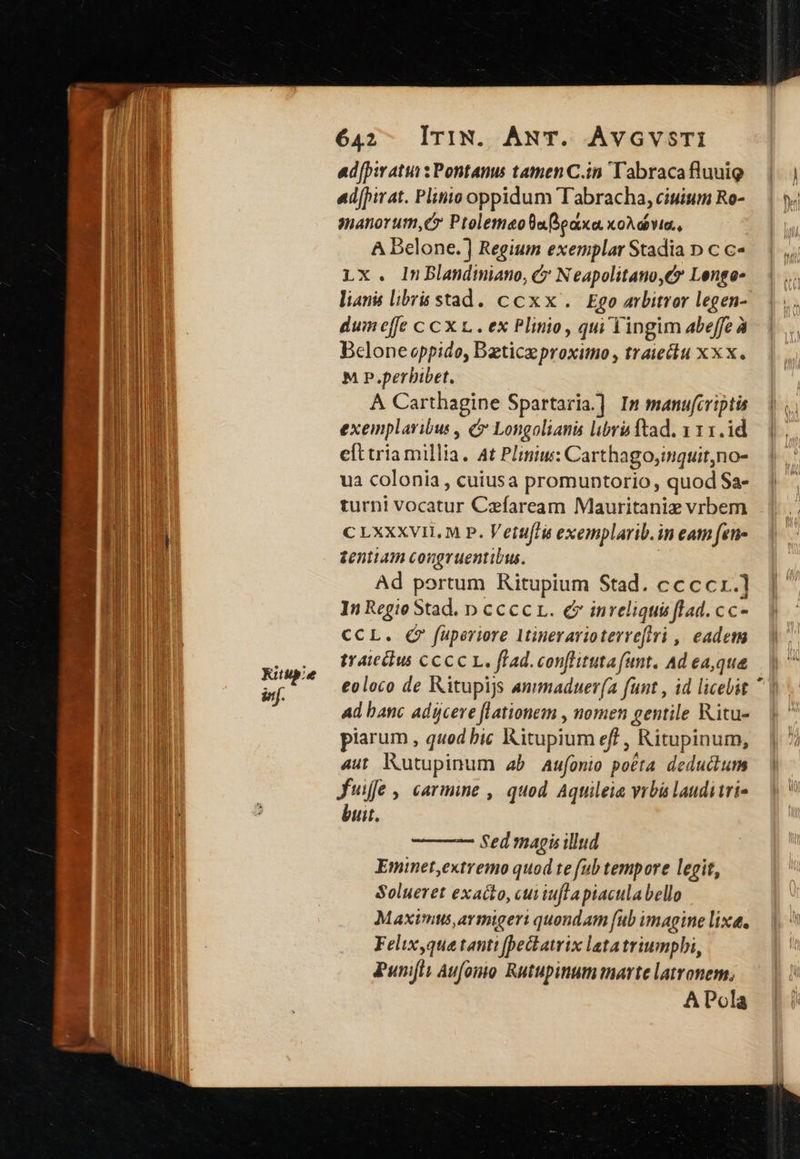 642 ITIN. ANT. AVGVSTI
adſpiratur: Pontanus tamen C. in Tabraca fluuio
adſpirat. Plinio oppidum Tabracha, ciuium Ro-
manorum, & Ptolemæo θαβράκα κολώνια,
A Belone.] Regium exemplar Stadia D C C-
LX. In Blandiniano, & Neapolitano, & Longo-
lianis libris stad. CCXX. Ego arbitror legen-
dum eſſe CCXL. ex Plinio, qui Tingim abeſſe à
Belone oppido, Bæticæ proximo, traiectu XXX.
M P. perhibet.
A Carthagine Spartaria.] In manuſcriptis
exemplaribus, & Longolianis libris ſtad. 111. id
eſt tria millia. At Plinius: Carthago, inquit, no-
ua colonia, cuius a promuntorio, quod Sa-
turni vocatur Cæſaream Mauritaniæ vrbem
CLXXXVII. M P. Vetuſtis exemplarib. in eam ſen-
tentiam congruentibus.
Ad portum Ritupium Stad. CCCCL.]
In Regio Stad. D CCCC L. & in reliquis ſtad. CC-
CCL. & ſuperiore Itinerario terreſtri, eadem
traiectus CCCC L. ſtad. conſtituta ſunt. Ad ea, quæ
Ritupiæ
inf.
eo loco de Ritupijs animaduerſa ſunt, id licebit
ad hanc adijcere ſtationem, nomen gentile Ritu-
piarum, quod hic Ritupium eſt, Ritupinum,
aut Rutupinum ab Auſonio poëta deductum
fuiſſe, carmine, quod Aquileiæ vrbis laudi tri-
buit.
——— Sed magis illud
Eminet, extremo quod te ſub tempore legit,
Solueret exacto, cui iuſta piacula bello
Maximus, armigeri quondam ſub imagine lixæ.
Felix, quæ tanti ſpectatrix læta triumphi,
Puniſti Auſonio Rutupinum marte latronem.
A Pola